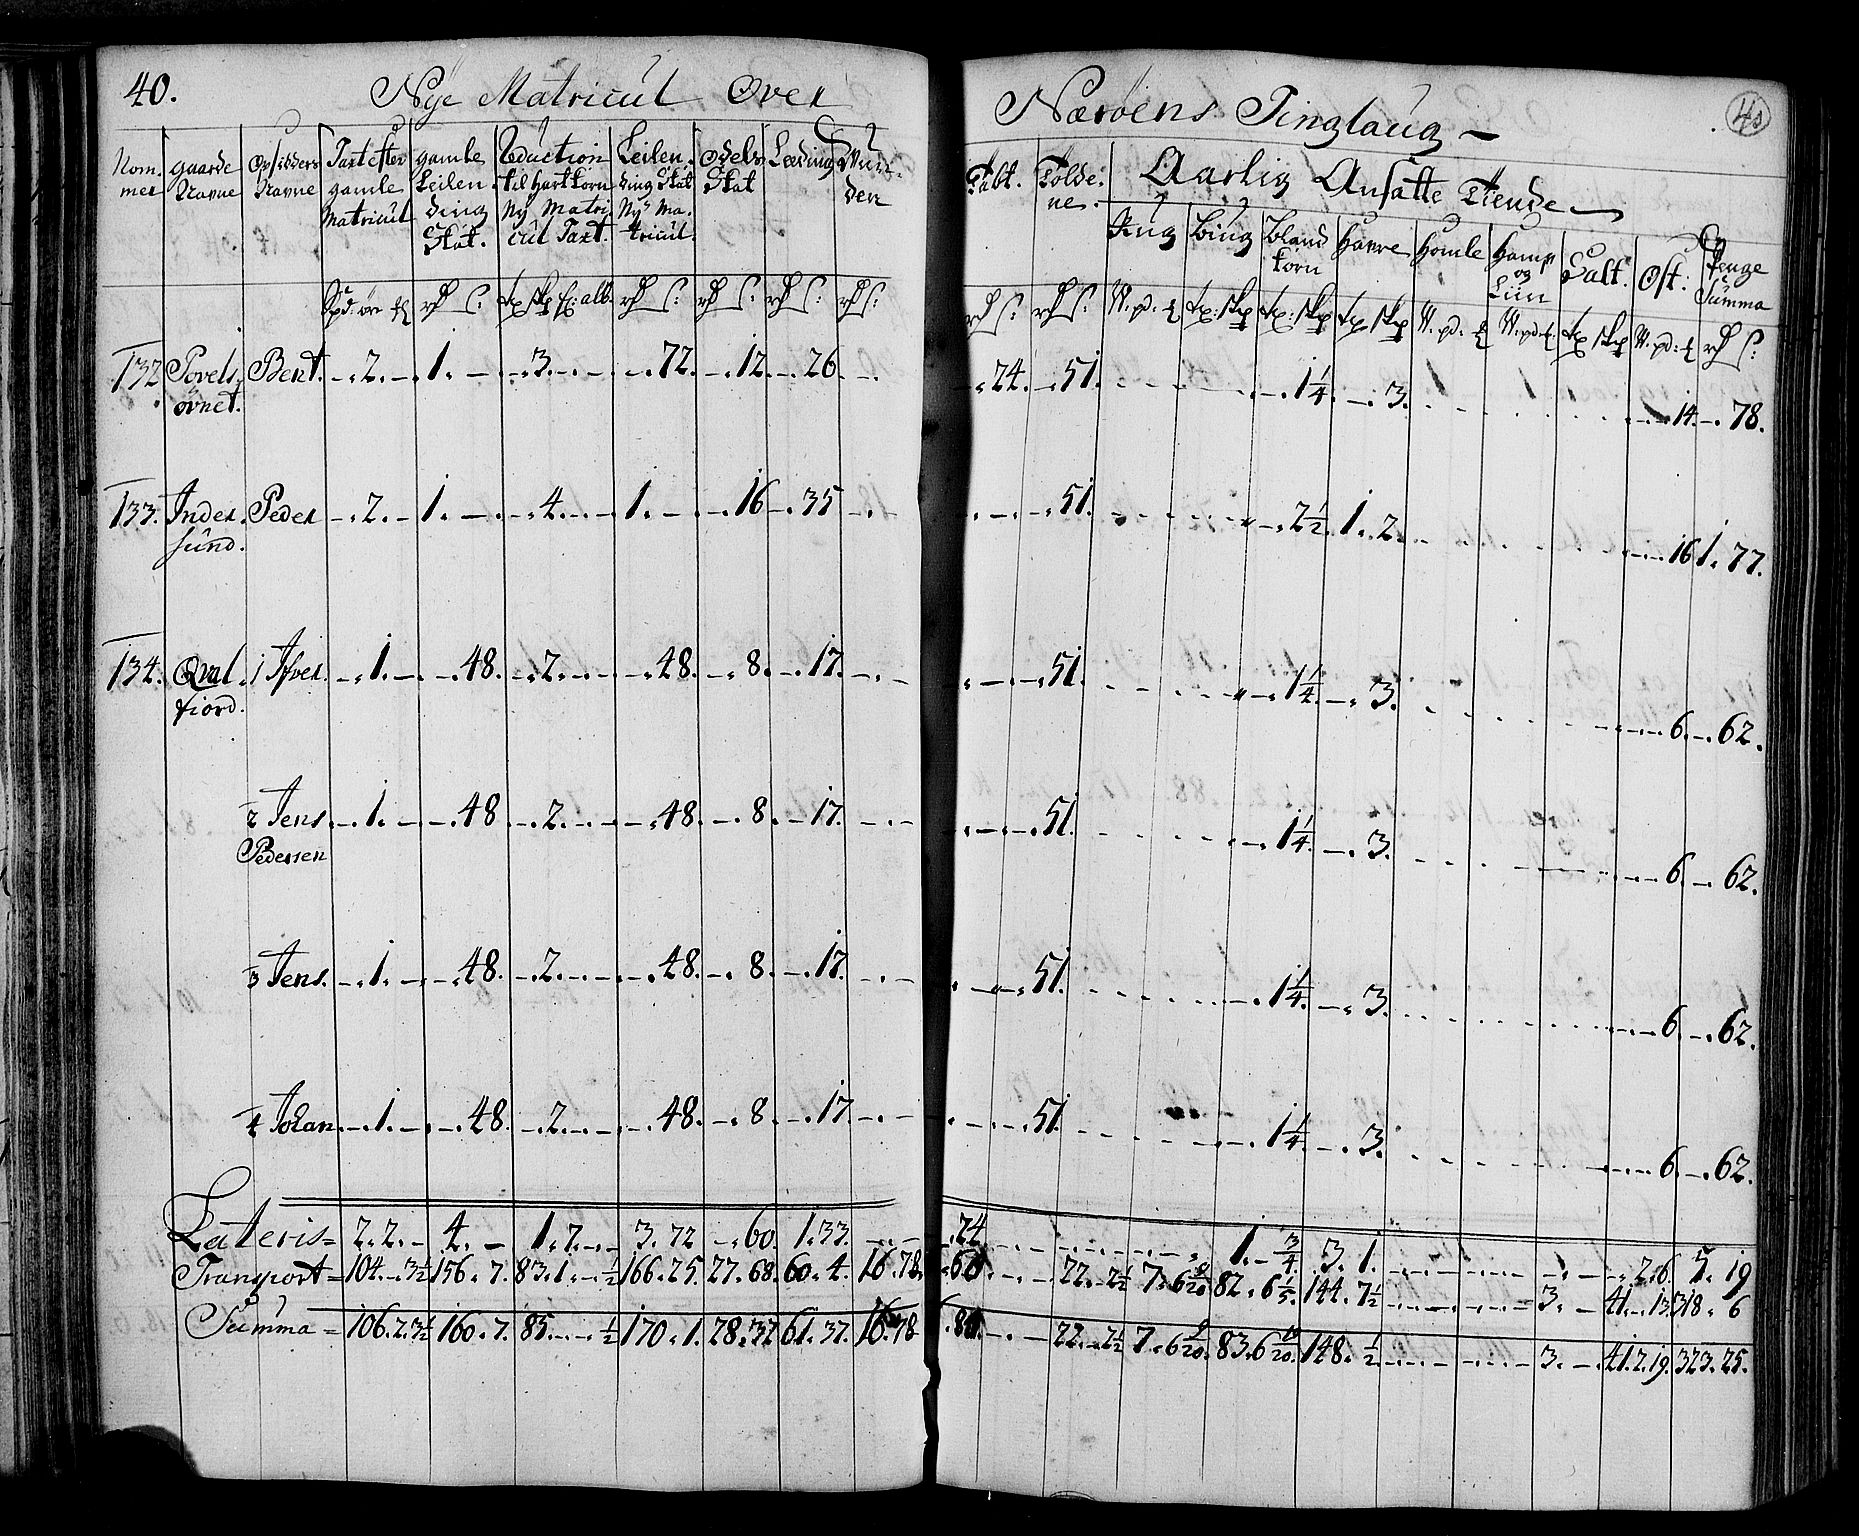 40. Nÿe Matricul Over Nærøens Tinglaug
40
Nom-mer | gaarde Navne | Opsidders Navne | Taxt efter gamle Matricul | gamle Leilen-ding Skat. | Reduction til hart korn Nÿ Matri-cul Taxt. | Leilen-ding Skat Nÿ Ma-tricul. | Odels Skat | Leeding
Aarlig Ansatte Tiende
Rug | Bÿug | Bland korn | Havre | Homle | Hamp og Liin | Salt. | Ost. | Penge Summa
132 Povels-øvnet. Bent. 2. 1. 3. 72. 12. 26 24. 51. 1 1/4. 3. 14. 78.
133. Inder-sund. Peder 2. 1. 4. 1. 16 35 51. 2 1/2. 1. 2. 16 1. 77.
134. Qval-fiord. 1 Ifver. 1. 48. 2. 48. 8. 17. 51. 1 1/4. 3. 6. 62.
2 Jens Pedersen 1. 48 2. 48. 8. 17. 51. 1 1/4. 3. 6. 62.
3 Jens. 1. 48. 2. 48. 8. 17. 51. 1 1/4. 3. 6. 62.
4 Johan 1. 48. 2. 48. 8. 17. 51. 1 1/4. 3. 6. 62.
Lateris = 2. 2. 4. 1. 7. 3. 72 60. 1. 33. 24. 1. 3/4. 3. 1. 2. 6. 5. 19
Transport = 104. 3 1/2 156. 7. 83. 1. 1/2 166. 25. 27. 68. 60. 4. 16. 78. 22. 2 1/2 7. 6 9/20 82. 6 1/5. 144. 7 1/2 3. 41. 13. 318. 6
Summa = 106. 2. 3 1/2 160. 7. 85. 1/2 170. 1. 28. 37 61. 37. 16. 78 22. 2 1/2 7. 6 9/20. 83. 6 19/20. 148. 1/2 3. 41. 2. 19. 323. 25.